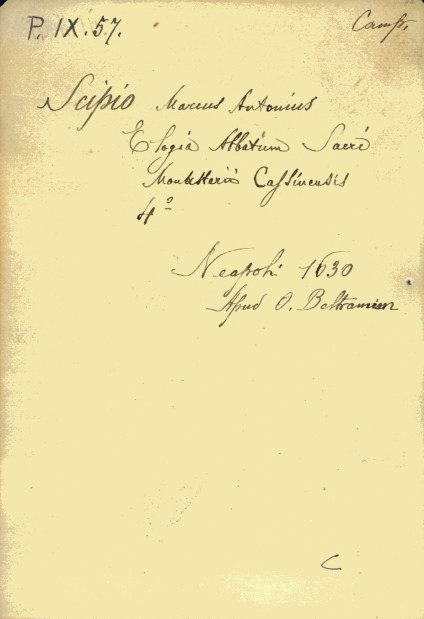 P. IX. 57.
Camp.
Scipio Marcus Antonius
Elogia Abbatum Sacri
Monasterii Cassinensis
4º
Neapoli 1630
Apud O. Beltramum
C